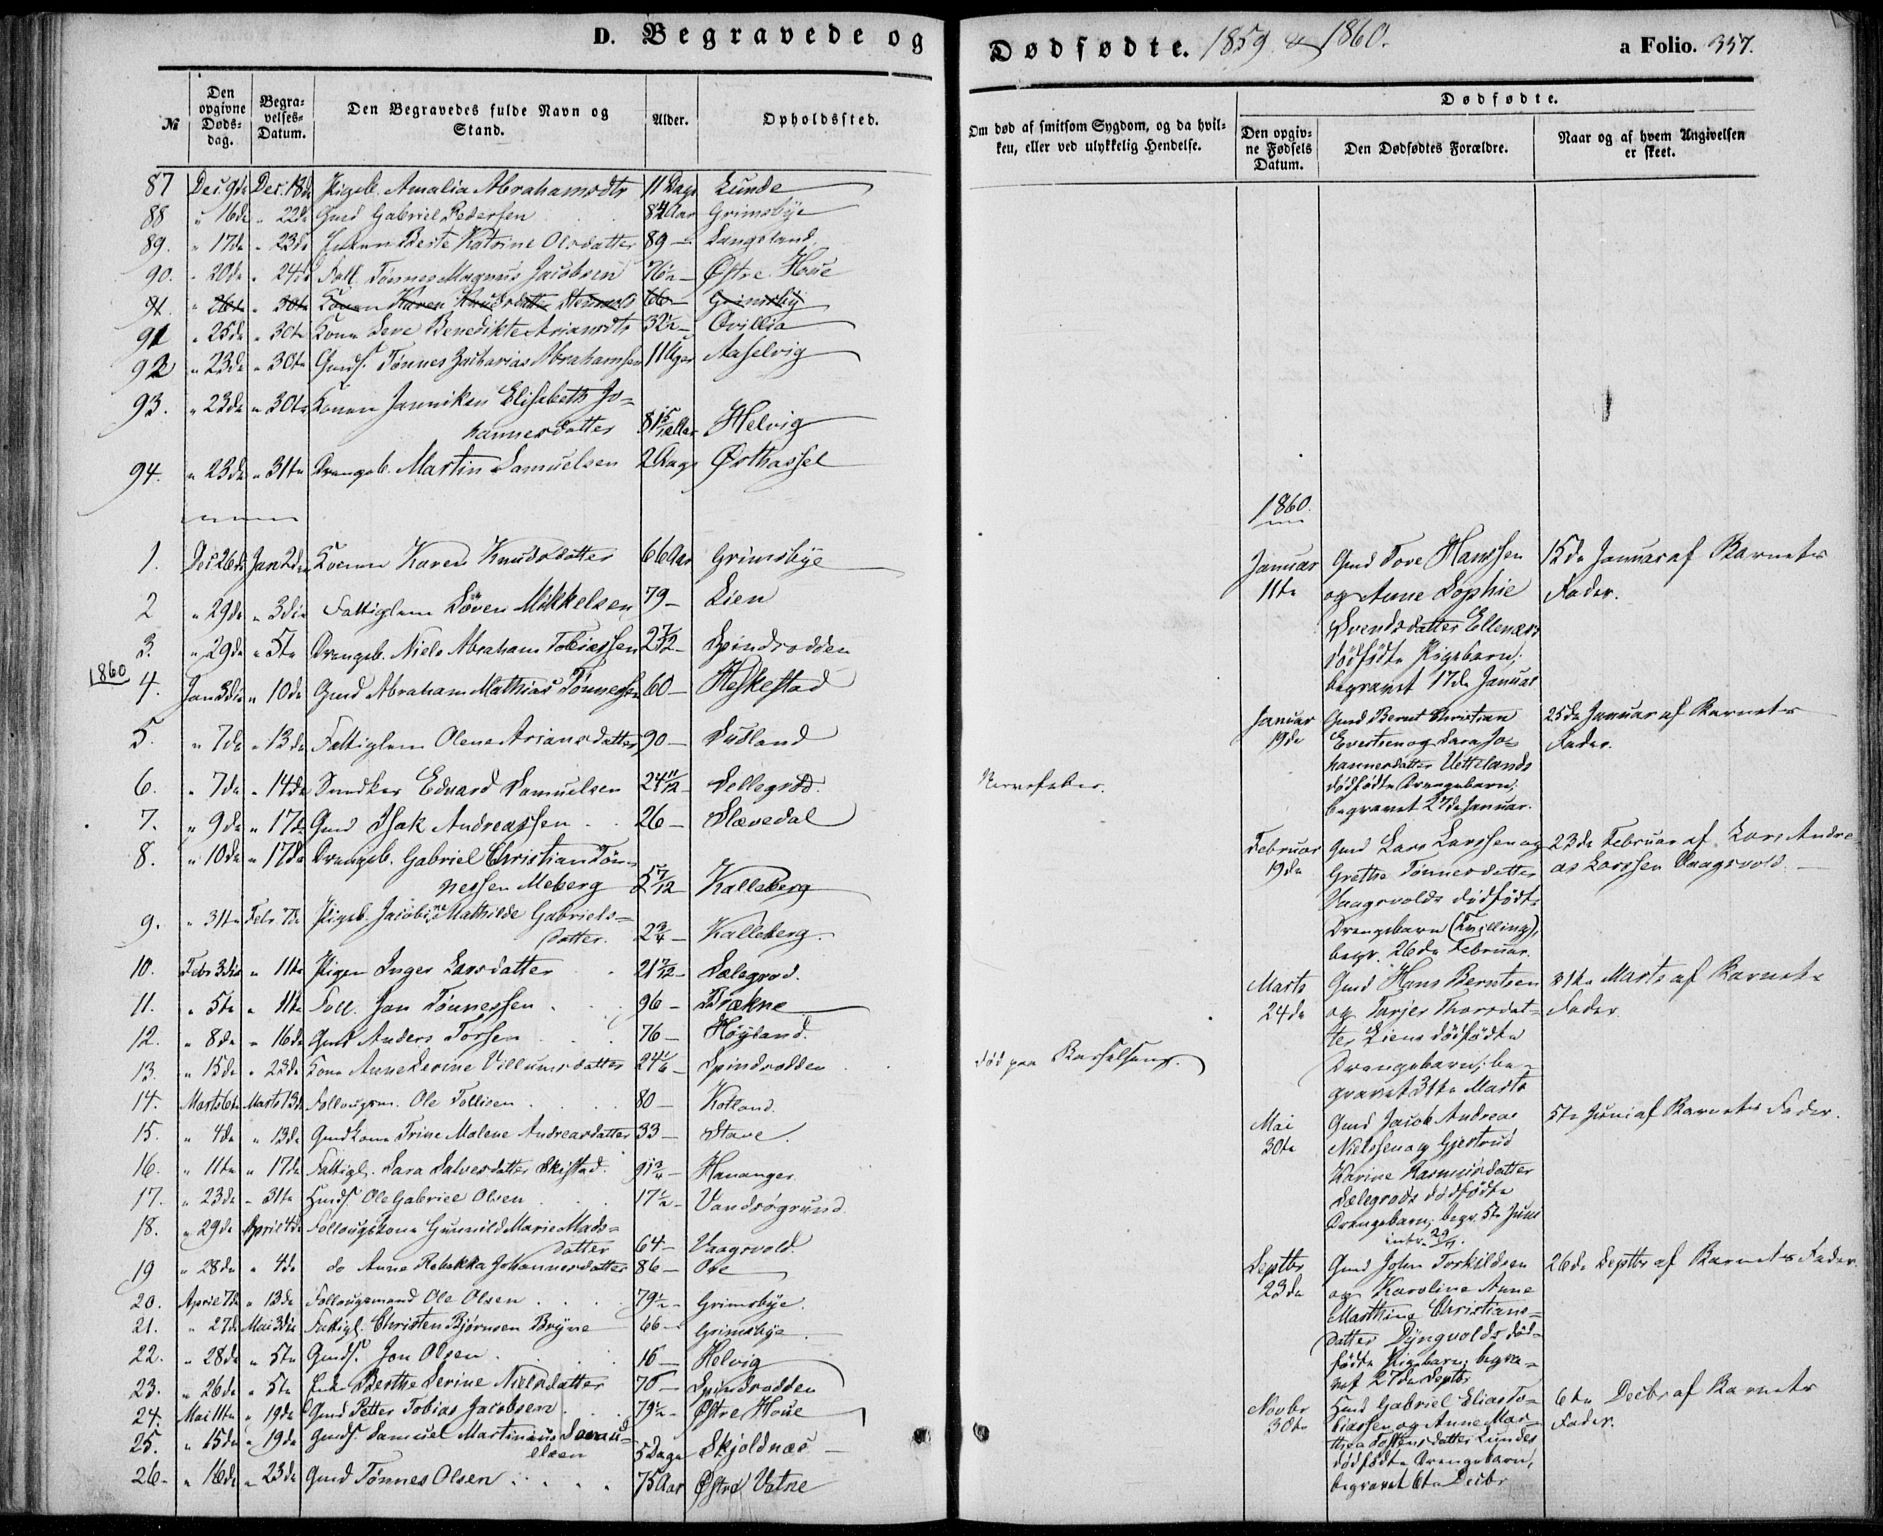 D. Begravede og
Dødfødte. 1859 & 1860.
a Folio. 357.
№
Den opgivne Døds-dag.
Begra-velses-Datum.
Den Begravedes fulde Navn og Stand.
Alder.
Opholdssted.
Om død af smitsom Sygdom, og da hvil-
ken, eller ved ulykkelig Hendelse.
Dødfødte.
Den opgiv-ne Fødsels Datum.
Den Dødfødtes Forældre.
Naar og af hvem Angivelsen er skeet.
87 Dec. 9de Dec. 18de Pigeb. Amalia Abrahamsdtr 11 Dage Lunde
88 " 16de " 22de Gmd Gabriel Pedersen 84 Aar Grimsbye
89. " 17de " 23de Berte Katrine Olsdatter 89 — Langeland
90. " 20de " 24de Foll. Tønnes Magnus Jacobsen 76½ — Østre Houe
91. " 26te " 30te Konen Karen Knudsdatter 66 — Grimsby
91 " 25de " 30te Kone Seve Benedikte Ariansdtr 32½ — Qvillia
92 " 23de " 30te Gmds. Tønnes Zacharias Abrahamsen 11 Uger Aaselvig
93. " 23de " 30te Konen Janniken Elisabeth Jo-
hannesdatter 81 5/12 Aar Helvig
94. " 23de " 31te Drengeb. Martin Samuelsen 2 Dage Østhassel
1. Dec 26de Jan 2den Konen Karen Knudsdatter 66 Aar Grimsbye
2 " 29de " 3die Fattiglem Søren Mikkelsen 79 — Lien
3. " 29de " 5te Drengeb. Niels Abraham Tobiassen 2 7/12 — Spindrodden
1860
4. Jan 3die " 10de Gmd Abraham Mathias Tønnessen 60 — Heskestad
5. " 7de " 13de Fattiglem Olene Ariansdatter 90 — Sudland
6. " 7de " 14de Snedker Edvard Samuelsen 24 11/12 — Sellegrod. Nervefeber.
7. " 9de " 17de Gmd Isak Andreassen 26 — Slævedal
8. " 10de " 17de Drengeb. Gabriel Christian Tøn-
nessen Meberg 2 7/12 — Kalleberg
9. " 31te Febr. 7de Pigeb. Jacobine Mathilde Gabriels-
datter. 2¾ — Kalleberg.
10. Febr 3die " 11te Pigen Inger Larsdatter 21 7/12 — Sælegrod.
11. " 5te " 11te Foll. Jan Tønnessen 96 — Brækne
12. " 8de " 16de Gmd Anders Torsen 76 — Høyland.
13. " 15de " 23de Kone Anne Serine Villumsdatter 24 1/6 — Spindrodden død paa Barselseng.
14. Marts 6te Marts 13de Follougsm. Ole Tollisen 80 — Kotland.
15. " 4de " 13de Gmdkone Trine Malene Andreasdatter 33 — Stave.
16. " 11te " 17de Fattigl. Sara Salvesdatter Skistad. 91¾ — Hananger
17. " 23de " 31te Hmds. Ole Gabriel Olsen 17½ — Vandsøgrund.
18. " 29de April 4de Follougskone Gunnild Marie Mads-
datter 64 — Vaagsvold.
19 " 28de " 4de do Anne Rebekka Johannesdatter 86 — Ore
20. April 7de " 13de Follougsmand Ole Olsen 79½ — Grimsbye.
21. " 27de Mai 3die Fattigl. Christen Bjørnsen Bryne 66 — Grimsbye.
22. " 28de " 5te Gmds. Jon Olsen 16 — Helvig
23. " 26de " 5te Enke Berthe Serine Nielsdatter 75 — Spindrodden
24. Mai 11te " 19de Gmd Petter Tobias Jacobsen 79½ — Østre Houe
25. " 15de " 19de Gmds. Samuel Martinius Samu-
elsen 5 Dage Skjoldnæs
26. " 16de " 23de Gmd Tønnes Olsen 75 Aar Østre Vatne
1860.
Januar 11te
Gmd Tove Hanssen
og Anne Sophie
Svendsdatter Ellenæs
dødfødte Pigebarn;
begravet 17de Januar
15de Januar af Barnets
Fader.
Januar 19de
Gmd Bernt Christian
Evertsen og Sara Jo-
hannesdatter Uettelands
dødfødte Drengebarn;
begravet 27de Januar.
25de Januar af Barnets
Fader.
Februar 19de
Gmd Lars Larssen og
Grethe Tønnesdatter
Vaagsvolds dødfødte
Drengebarn (Tvilling),
begr. 26de Februar.
23de Februar af Lars Andre
as Larssen Vaagsvold
Marts 24de
Gmd Hans Berntsen
og Tarjer Thorsdat-
ter Liens dødfødte
Drengebarn; be-
gravet 31te Marts
31te Marts af Barnets
Fader.
Mai 30te
Gmd Jacob Andreas
Nielssen og Gjertrud
Karine Rasmusdatter
Sælegrods dødfødte
Drengebarn; begr. 5te Juni
5te Juni af Barnets Fader.
Septbr 23de
Gmd John Torkildsen
og Karoline Anne
Marthine Christians-
datter Dyngvolds død-
fødte Pigebarn; begra-
vet 27de Septbr
26de Septbr af Barnets Fader.
Novbr 30te
Hmd Gabriel Elias To-
biassen og Anne Mar-
thea Torkensdatter Lundes
dødfødte Drengebarn,
begravet 6te Decbr
6te Decbr af Barnets
Fader.